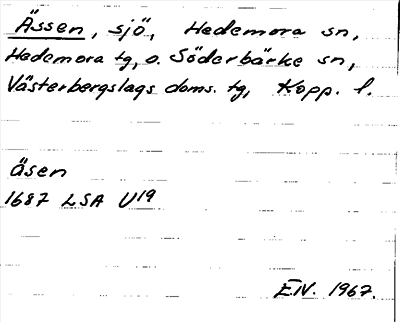 Ässen, sjö, Hedemora sn,
Hedemora tg, o. Söderbärke sn,
Västerbergslags doms. tg, Kopp. l.
äsen
1687 LSA U19
EIV. 1967.